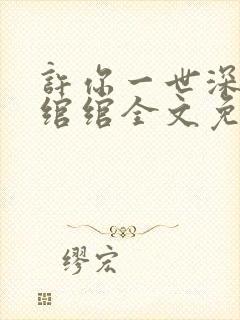 許你一世深
绾绾全文免
缪宏